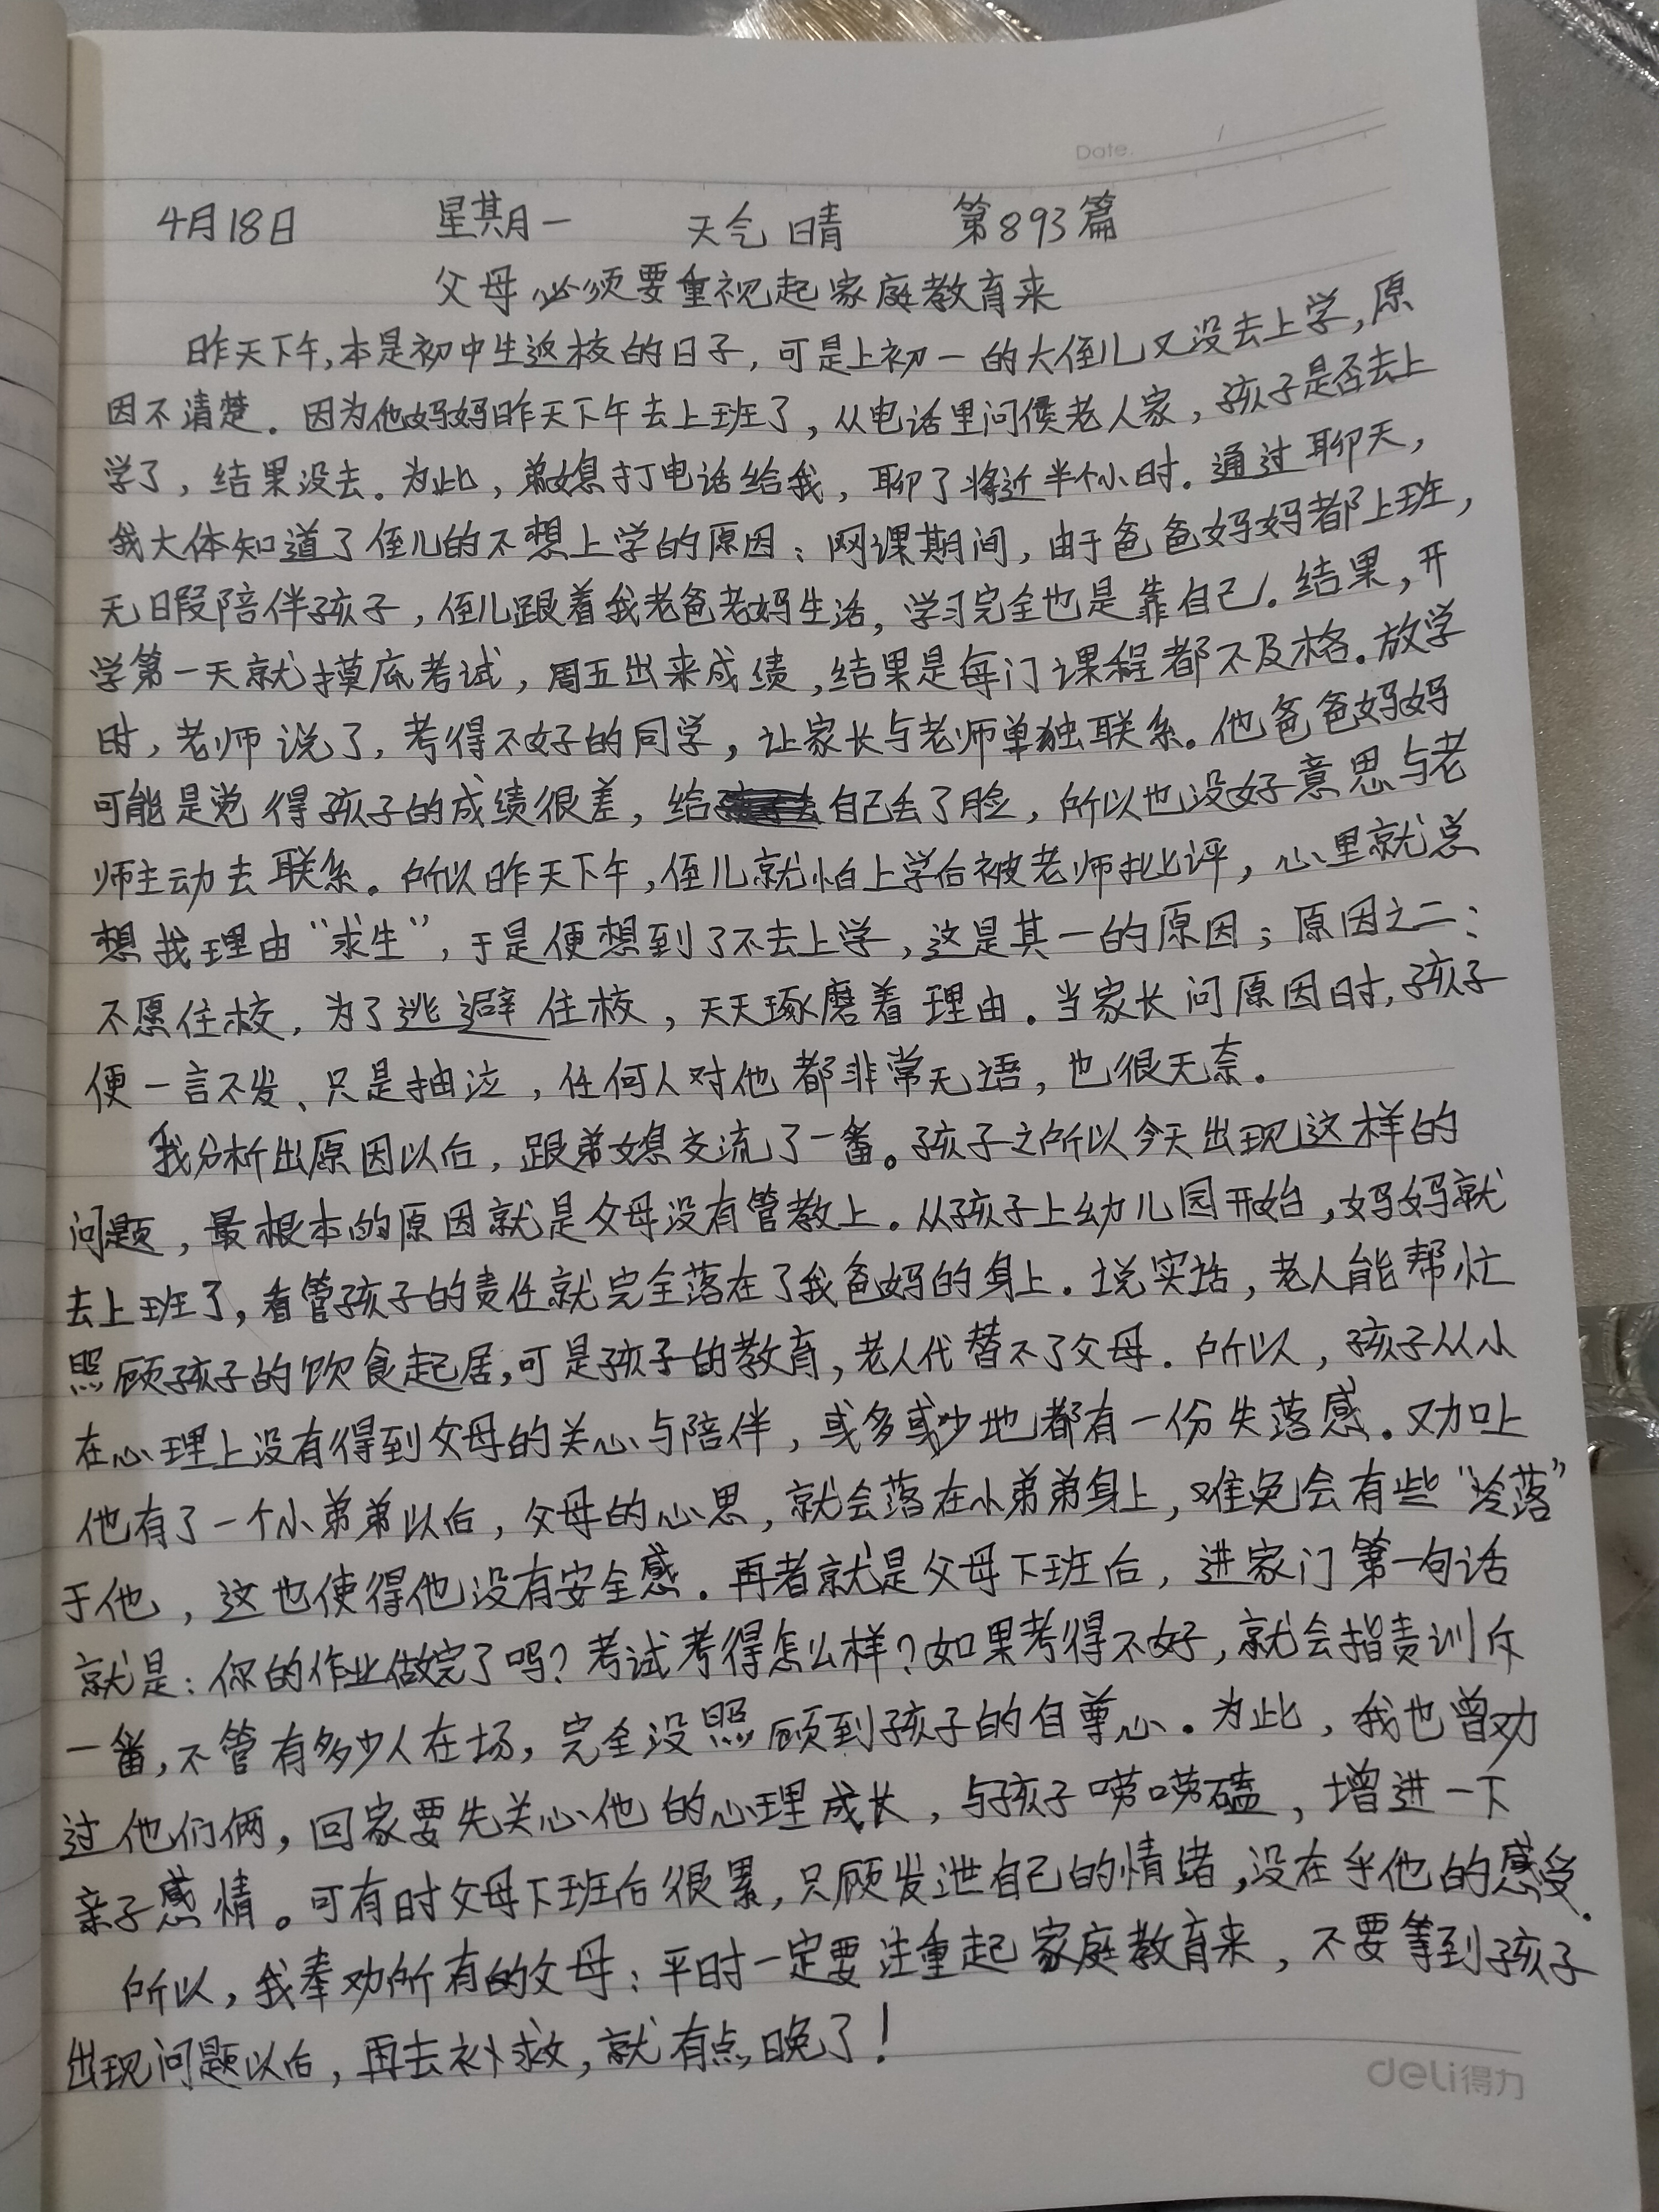 Date. /
4月18日 星期一 天气 晴 第893篇
父母必须要重视起家庭教育来
昨天下午,本是初中生返校的日子,可是上初一的大侄儿又没去上学,原
因不清楚。因为他妈妈昨天下午去上班了,从电话里问候老人家,孩子是否去上
学了,结果没去。为此,弟媳打电话给我,聊了将近半个小时。通过聊天,
我大体知道了侄儿的不想上学的原因:网课期间,由于爸爸妈妈都上班,
无暇陪伴孩子,侄儿跟着我老爸老妈生活,学习完全也是靠自己。结果,开
学第一天就摸底考试,周五出来成绩,结果是每门课程都不及格。放学
时,老师说了,考得不好的同学,让家长与老师单独联系。他爸爸妈妈
可能是觉得孩子的成绩很差,给自己丢了脸,所以也没好意思与老
师主动去联系。所以昨天下午,侄儿就怕上学后被老师批评,心里就总
想找理由“求生”,于是便想到了不去上学,这是其一的原因;原因之二:
不愿住校,为了逃避住校,天天琢磨着理由。当家长问原因时,孩子
便一言不发、只是抽泣,任何人对他都非常无语,也很无奈。
我分析出原因以后,跟弟媳交流了一番。孩子之所以今天出现这样的
问题,最根本的原因就是父母没有管教上。从孩子上幼儿园开始,妈妈就
去上班了,看管孩子的责任就完全落在了我爸妈的身上。说实话,老人能帮忙
照顾孩子的饮食起居,可是孩子的教育,老人代替不了父母。所以,孩子从小
在心理上没有得到父母的关心与陪伴,或多或少地都有一份失落感。又加上
他有了一个小弟弟以后,父母的心思,就会落在小弟弟身上,难免会有些“冷落”
于他,这也使得他没有安全感。再者就是父母下班后,进家门第一句话
就是:你的作业做完了吗?考试考得怎么样?如果考得不好,就会指责训斥
一番,不管有多少人在场,完全没照顾到孩子的自尊心。为此,我也曾劝
过他们俩,回家要先关心他的心理成长,与孩子唠唠嗑,增进一下
亲子感情。可有时父母下班后很累,只顾发泄自己的情绪,没在乎他的感受。
所以,我奉劝所有的父母:平时一定要注重起家庭教育来,不要等到孩子
出现问题以后,再去补救,就有点晚了!
deli得力